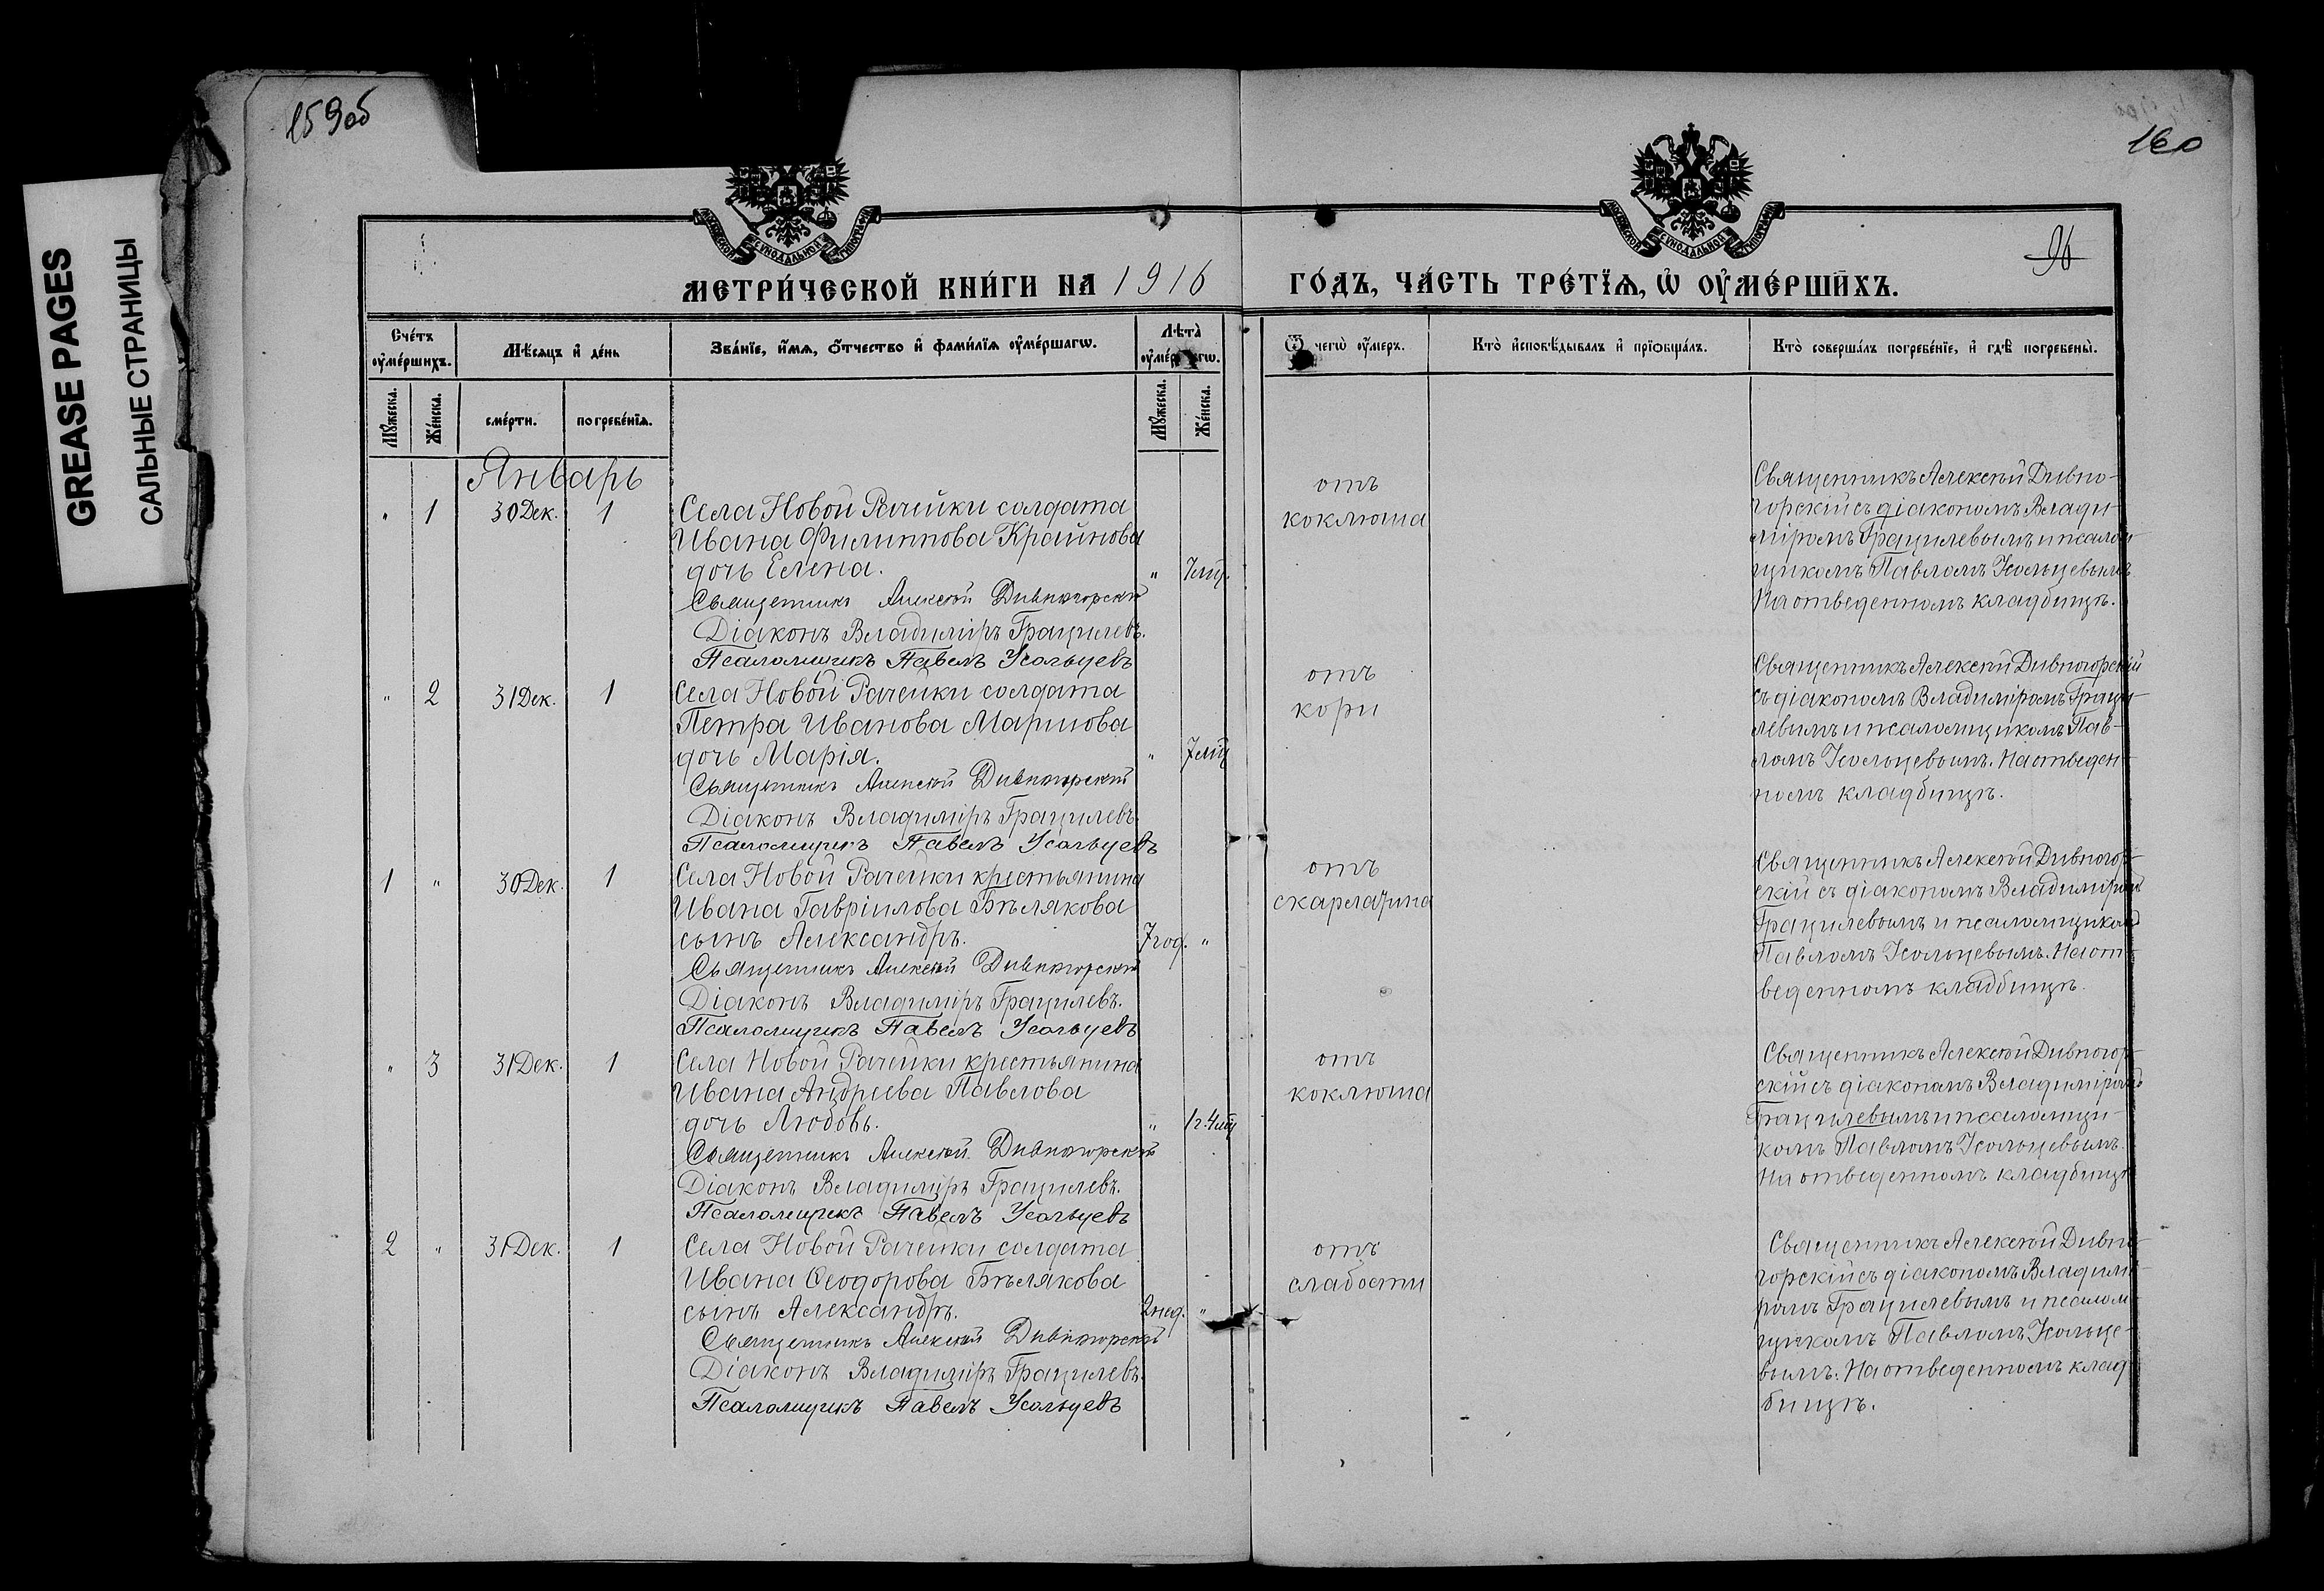 159об
160
GREASE PAGES
САЛЬНЫЕ СТРАНИЦЫ
МОСКОВСКОЙ СѴНОДАЛЬНОЙ ТИПОГРАФІИ
МОСКОВСКОЙ СѴНОДАЛЬНОЙ ТИПОГРАФІИ
96
МЕТРИ́ЧЕСКОЙ КНИ́ГИ НА 1916 ГО́ДЪ, ЧА́СТЬ ТРЕ́ТЇѦ, Ѡ҆ ОУ҆МЕ́РШИХЪ.
Сче́тъ оу҆ме́ршихъ.
Мѣ́сяцъ и҆ де́нь
Зва́нїе, и҆́мѧ, ѻ҆́тчество и҆ фами́лїѧ оу҆ме́ршагѡ.
Лѣ́та оу҆ме́ршагѡ.
Ѿ чегѡ̀ оу҆́меръ.
Кто̀ и҆сповѣ́дывалъ и҆ прїѡбща́лъ.
Кто̀ соверша́лъ погребе́нїе, и҆ гдѣ̀ погребены̀.
Мꙋ́жеска.
Же́нска.
сме́рти.
погребе́нїѧ.
Мꙋ́жеска.
Же́нска.
Январь
" 1 30 Дек. 1
Села Новой Рачейки солдата
Ивана Филиппова Крайнова
дочь Елена. " 7 мц.
Священникъ Алексѣй Дивногорскій
Діаконъ Владиміръ Грацилевъ.
Псаломщикъ Павелъ Усольцевъ
отъ
коклюша
Священникъ Алексѣй Дивно-
горскій съ діакономъ Влади-
міромъ Грацилевымъ и псалом-
щикомъ Павломъ Усольцевымъ
На отведенномъ кладбищѣ.
" 2 31 Дек. 1
Села Новой Рачейки солдата
Петра Иванова
дочь Марія. " 7 мц
Священникъ Алексѣй Дивногорскій
Діаконъ Владиміръ Грацилевъ
Псаломщикъ Павелъ Усольцевъ
отъ
кори
Священникъ Алексѣй Дивногорскій
съ діакономъ Владиміромъ Граци-
левымъ и псаломщикомъ Пав-
ломъ Усольцевымъ. На отведен-
номъ кладбищѣ.
1 " 30 Дек. 1
Села Новой Рачейки крестьянина
Ивана Гавріилова Бѣлякова
сынъ Александръ. 7 год. "
Священникъ Алексѣй Дивногорскій
Діаконъ Владиміръ Грацилевъ.
Псаломщикъ Павелъ Усольцевъ
отъ
скарлатина
Священникъ Алексѣй Дивногор-
скій съ діакономъ Владиміромъ
Грацилевымъ и псаломщикомъ
Павломъ Усольцевымъ. На от-
веденномъ кладбищѣ.
" 3 31 Дек. 1
Села Новой Рачейки крестьянина
Ивана Андреева Павлова
дочь Любовь. " 1 г. 4 мц
Священникъ Алексѣй Дивногорскій
Діаконъ Владиміръ Грацилевъ.
Псаломщикъ Павелъ Усольцевъ
отъ
коклюша
Священникъ Алексѣй Дивногор-
скій съ діакономъ Владиміромъ
Грацилевымъ и псаломщи-
комъ Павломъ Усольцевымъ.
На отведенномъ кладбищѣ
2 " 31 Дек. 1
Села Новой Рачейки солдата
Ивана Ѳеодорова Бѣлякова
сынъ Александръ. 2 нед. "
Священникъ Алексѣй Дивногорскій
Діаконъ Владиміръ Грацилевъ.
Псаломщикъ Павелъ Усольцевъ
отъ
слабости
Священникъ Алексѣй Дивно-
горскій съ діакономъ Владимі-
ромъ Грацилевымъ и псалом-
щикомъ Павломъ Усольце-
вымъ. На отведенномъ клад-
бищѣ.